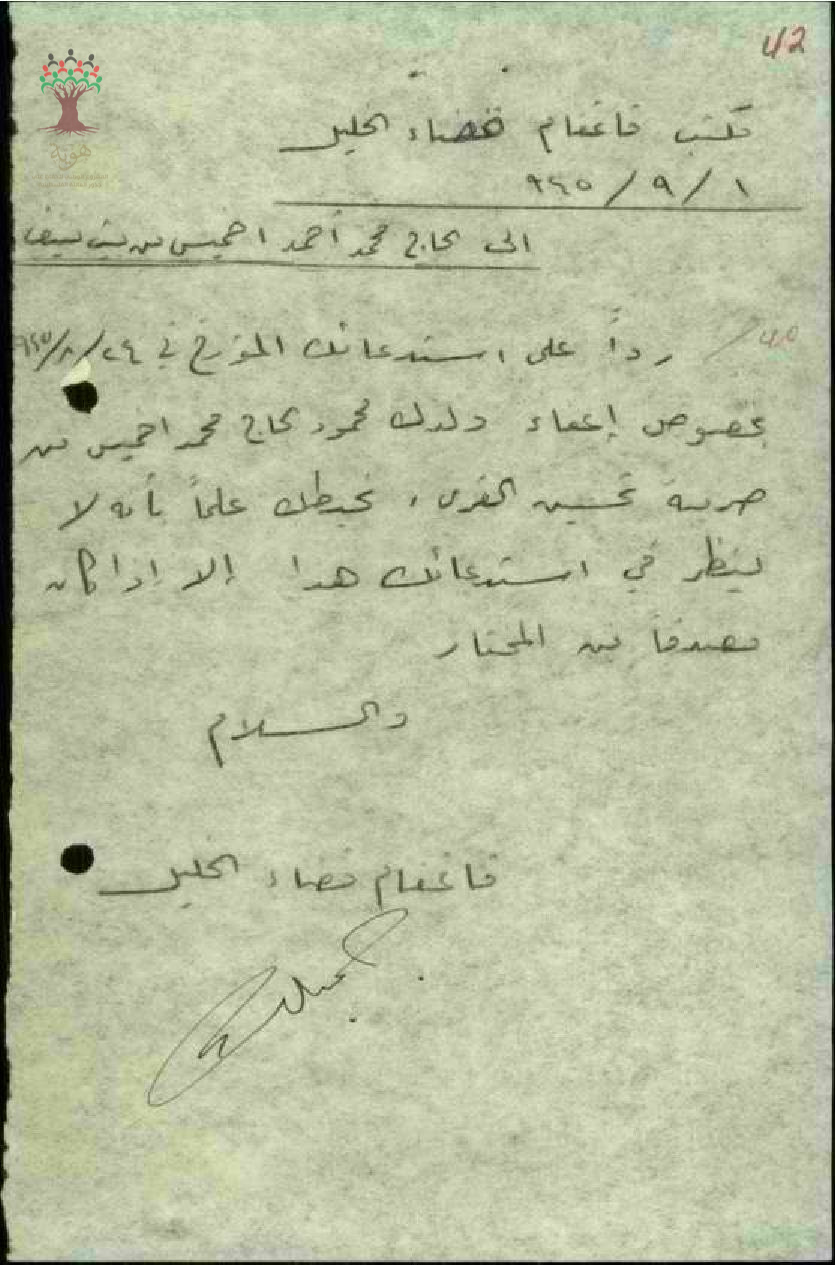 42
هوية
مكتب قائمقام قضاء الخليل
١ / ٩ / ٩٤٥
الى الحاج محمد أحمد اخميس من بيت
40 / رداً على استدعائك المؤرخ في ٢٤ / ٨ / ٩٤٥
بخصوص إعفاء ولدك محمود الحاج محمد اخميس من
ضريبة تحسين القرى، نحيطك علماً بأنه لا
ينظر في استدعائك هذا إلا إذا كان
مصدقاً من المختار
والسلام
قائمقام قضاء الخليل